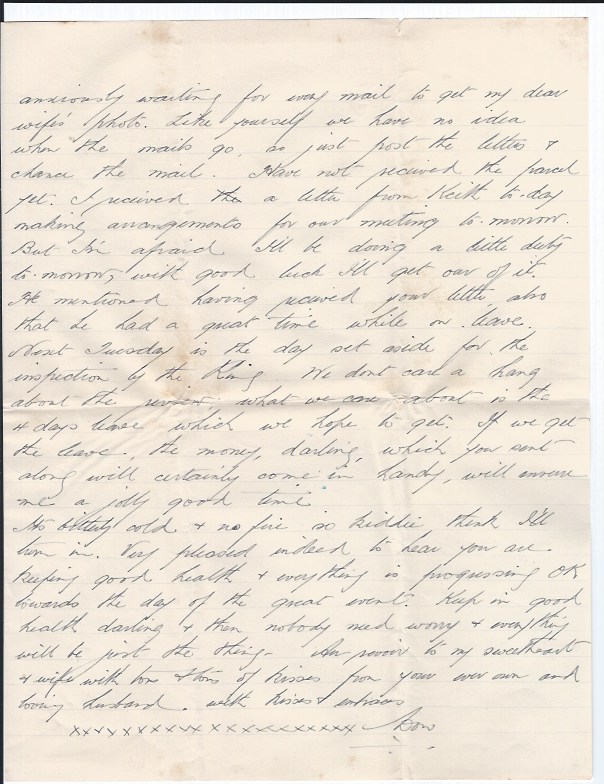 anxiously waiting for every mail to get my dear
wife's photo. Like yourself we have no idea
when the mails go, so just post the letters &
chance the mail. Have not recieved the parcel
yet. I recieved a letter from Keith to-day
making arrangements for our meeting to-morrow.
But I'm afraid I'll be doing a little duty
to-morrow, with good luck I'll get out of it.
He mentioned having recieved your letter, also
that he had a great time while on leave.
Next Tuesday is the day set aside for the
inspection by the King We dont care a hang
about the review, what we care about is the
4 days leave which we hope to get. If we get
the leave, the money, darling, which you sent
along will certainly come in handy, will ensure
me a jolly good time
Its bitterly cold & no fire so kiddie think I'll
turn in. Very pleased indeed to hear you are
keeping good health & everything is progressing OK
towards the day of the great event. Keep in good
health darling & then nobody need worry & everything
will be just the thing. Au revoir to my sweetheart
& wife with tons & tons of kisses from your ever own and
loving husband. with kisses &
xxxxxxxxxxxxxxxxxxxxxx